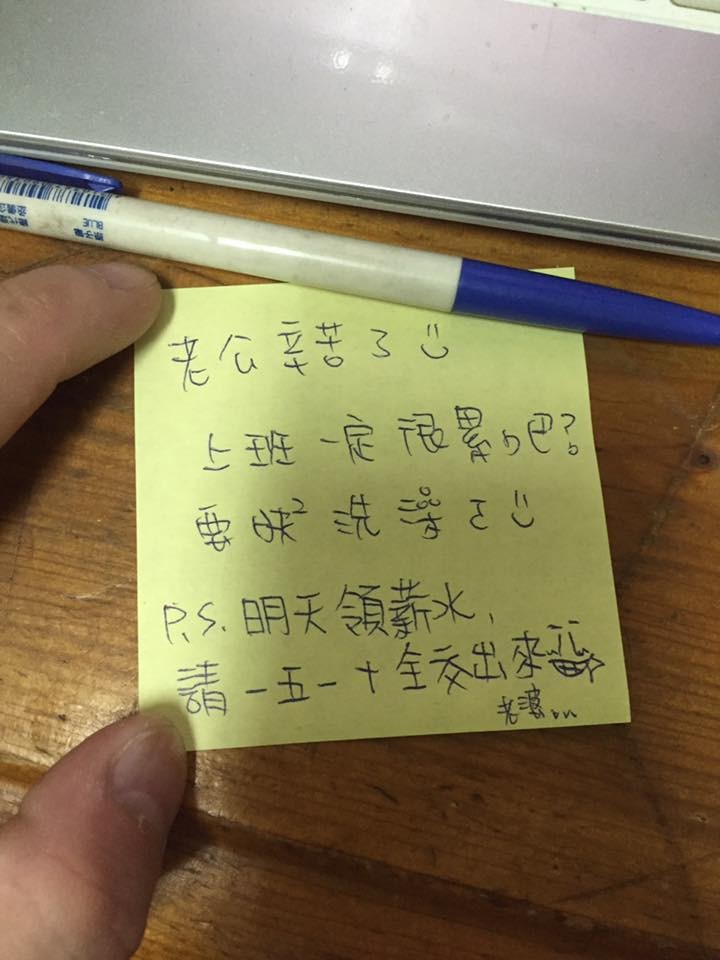 老公辛苦了
上班一定很累ㄉ吧?
要妹²洗澡ㄛ
P.S. 明天領薪水,
請一五一十全交出來
老婆on
BLUE
原子筆